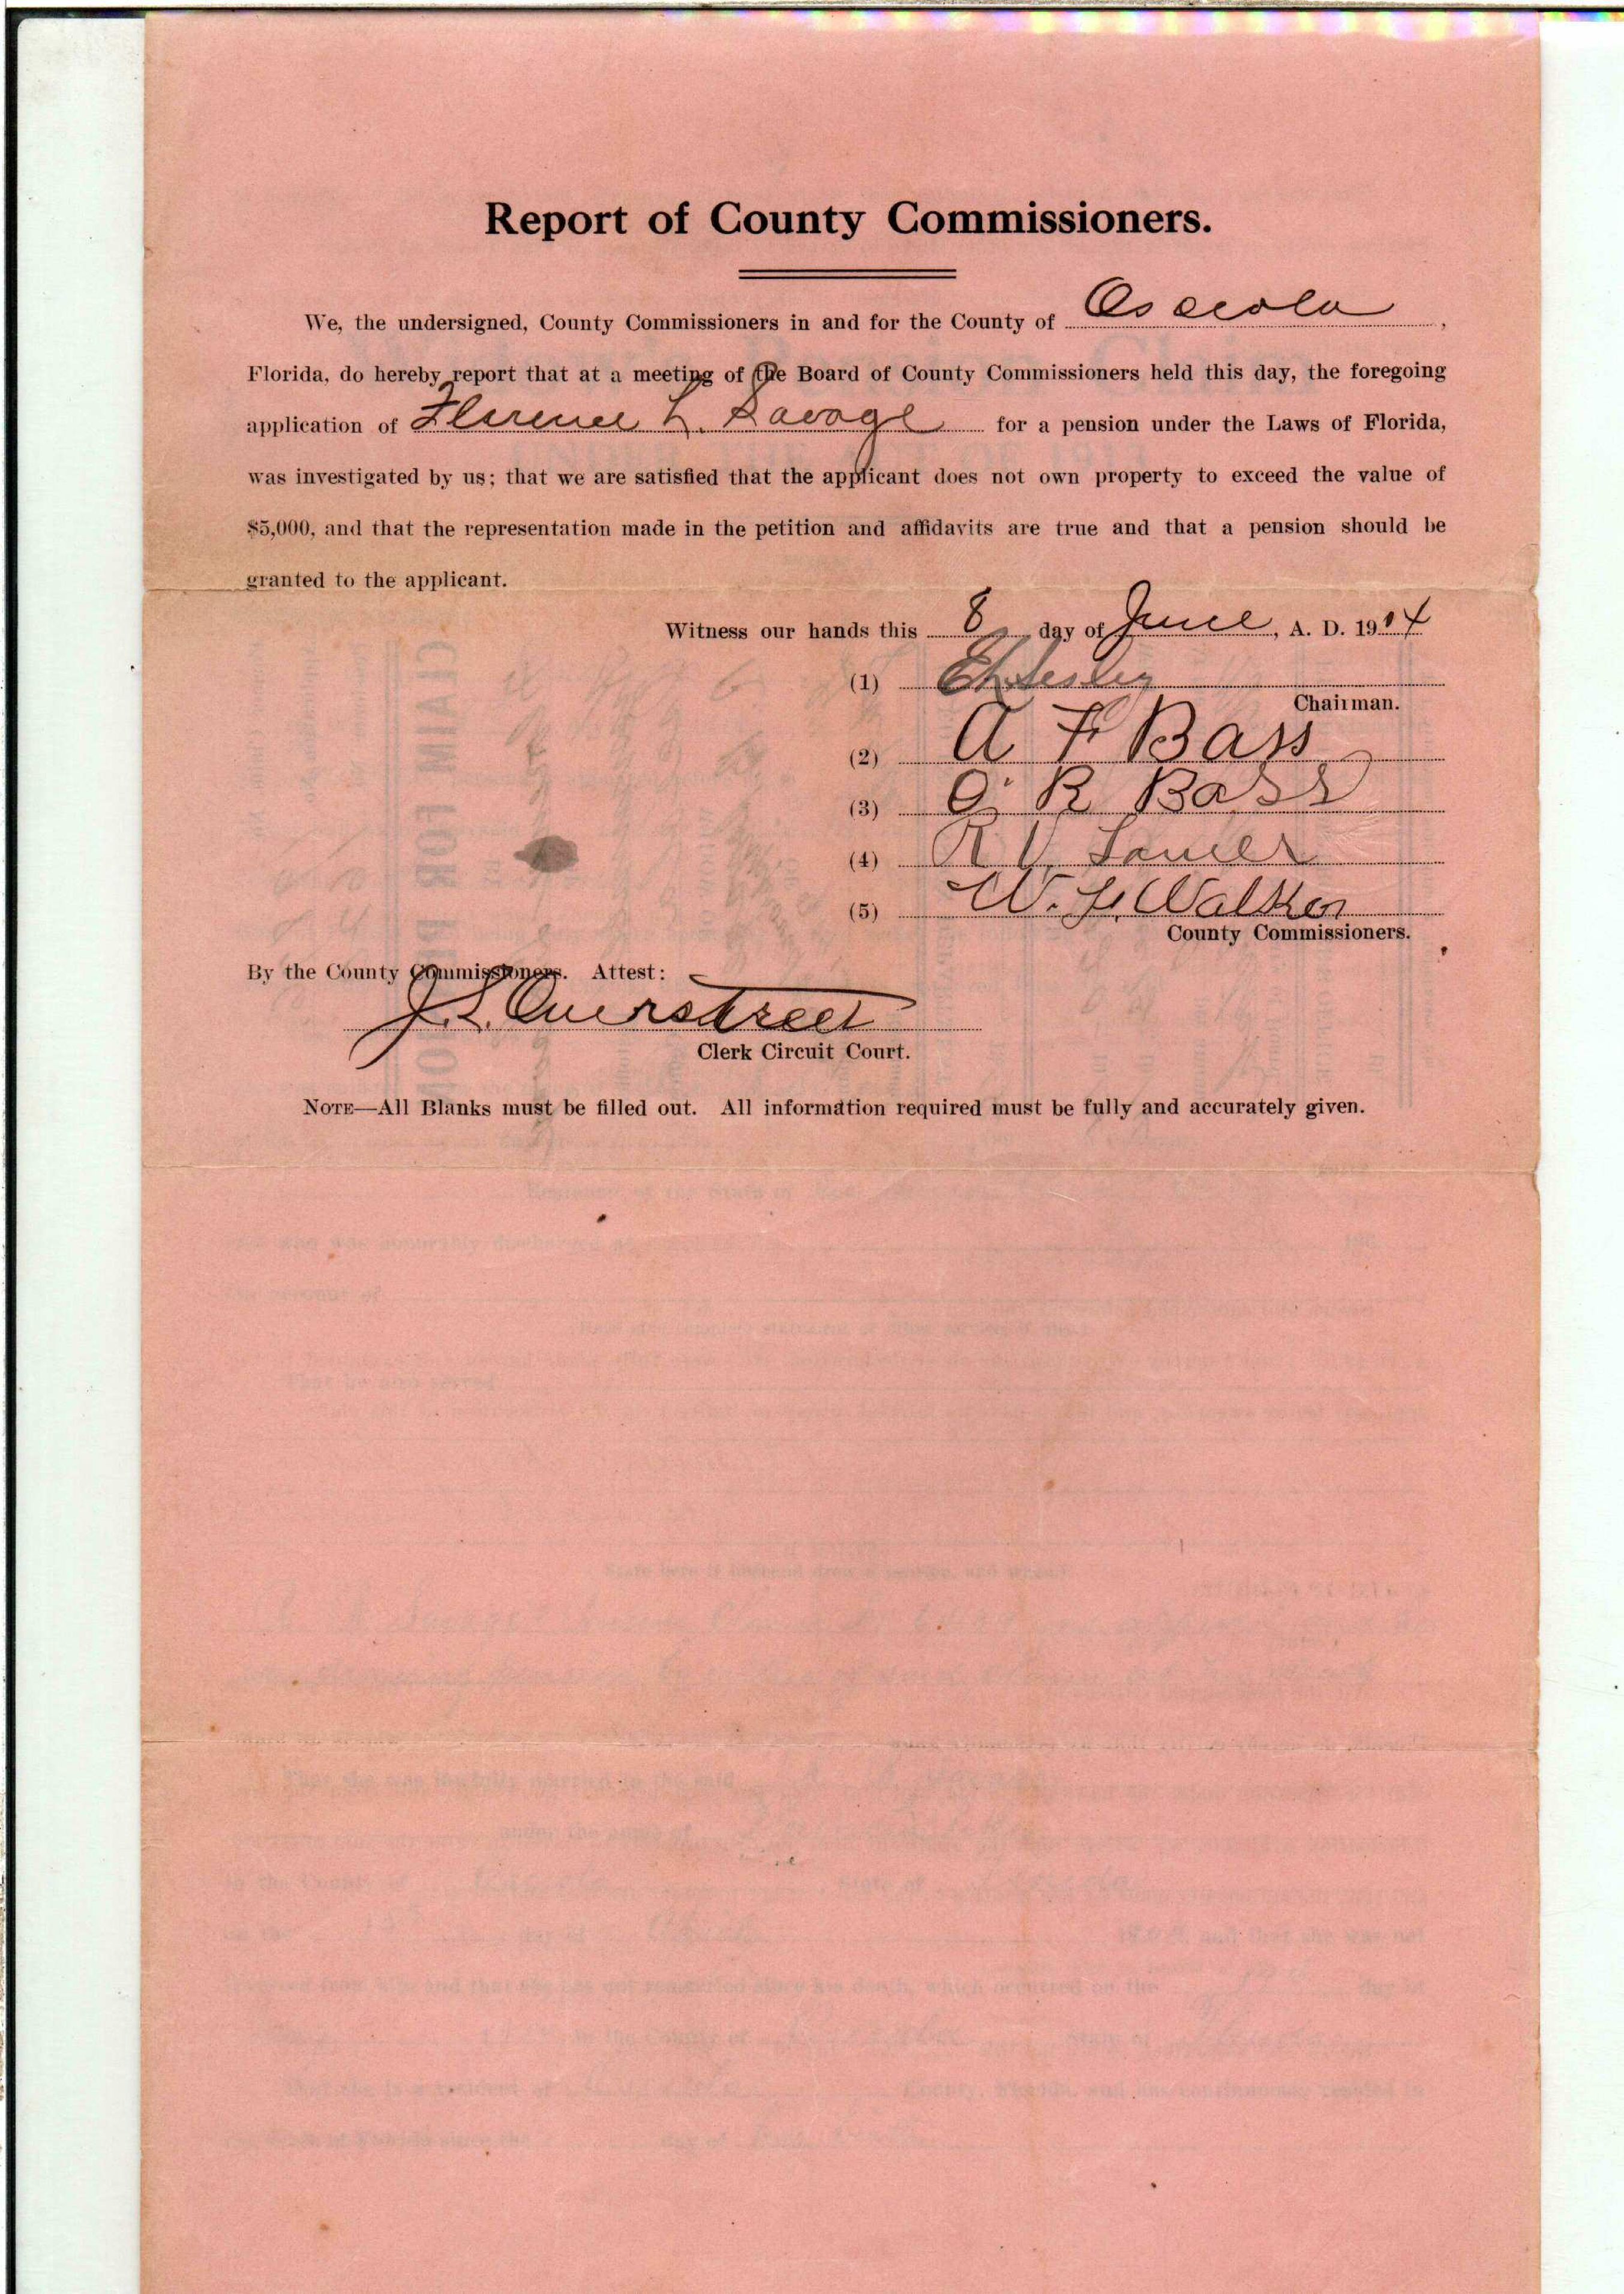 Report of County Commissioners.
We, the undersigned, County Commissioners in and for the County of Osceola,
Florida, do hereby report that at a meeting of the Board of County Commissioners held this day, the foregoing
application of Florence L. Savage for a pension under the Laws of Florida,
was investigated by us; that we are satisfied that the applicant does not own property to exceed the value of
$5,000, and that the representation made in the petition and affidavits are true and that a pension should be
granted to the applicant.
Witness our hands this 8 day of June, A. D. 1914
(1)
Chairman.
(2) A F Bass
(3) R Bass
(4)
(5) W. Walker
County Commissioners.
By the County Commissioners. Attest:
J. L. Overstreet
Clerk Circuit Court.
NOTE—All Blanks must be filled out. All information required must be fully and accurately given.